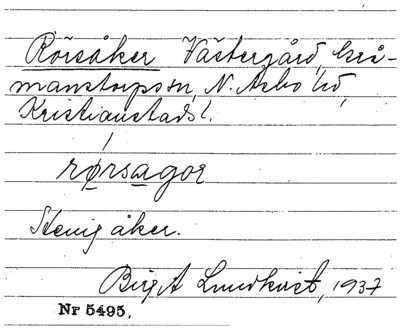 Rörsåker Västergård, Grå-
manstorps sn, N. Åsbo hd,
Kristianstads l.
rørsagor
Stenig åker.
Birgit Lundkvist, 1937
Nr 5495.